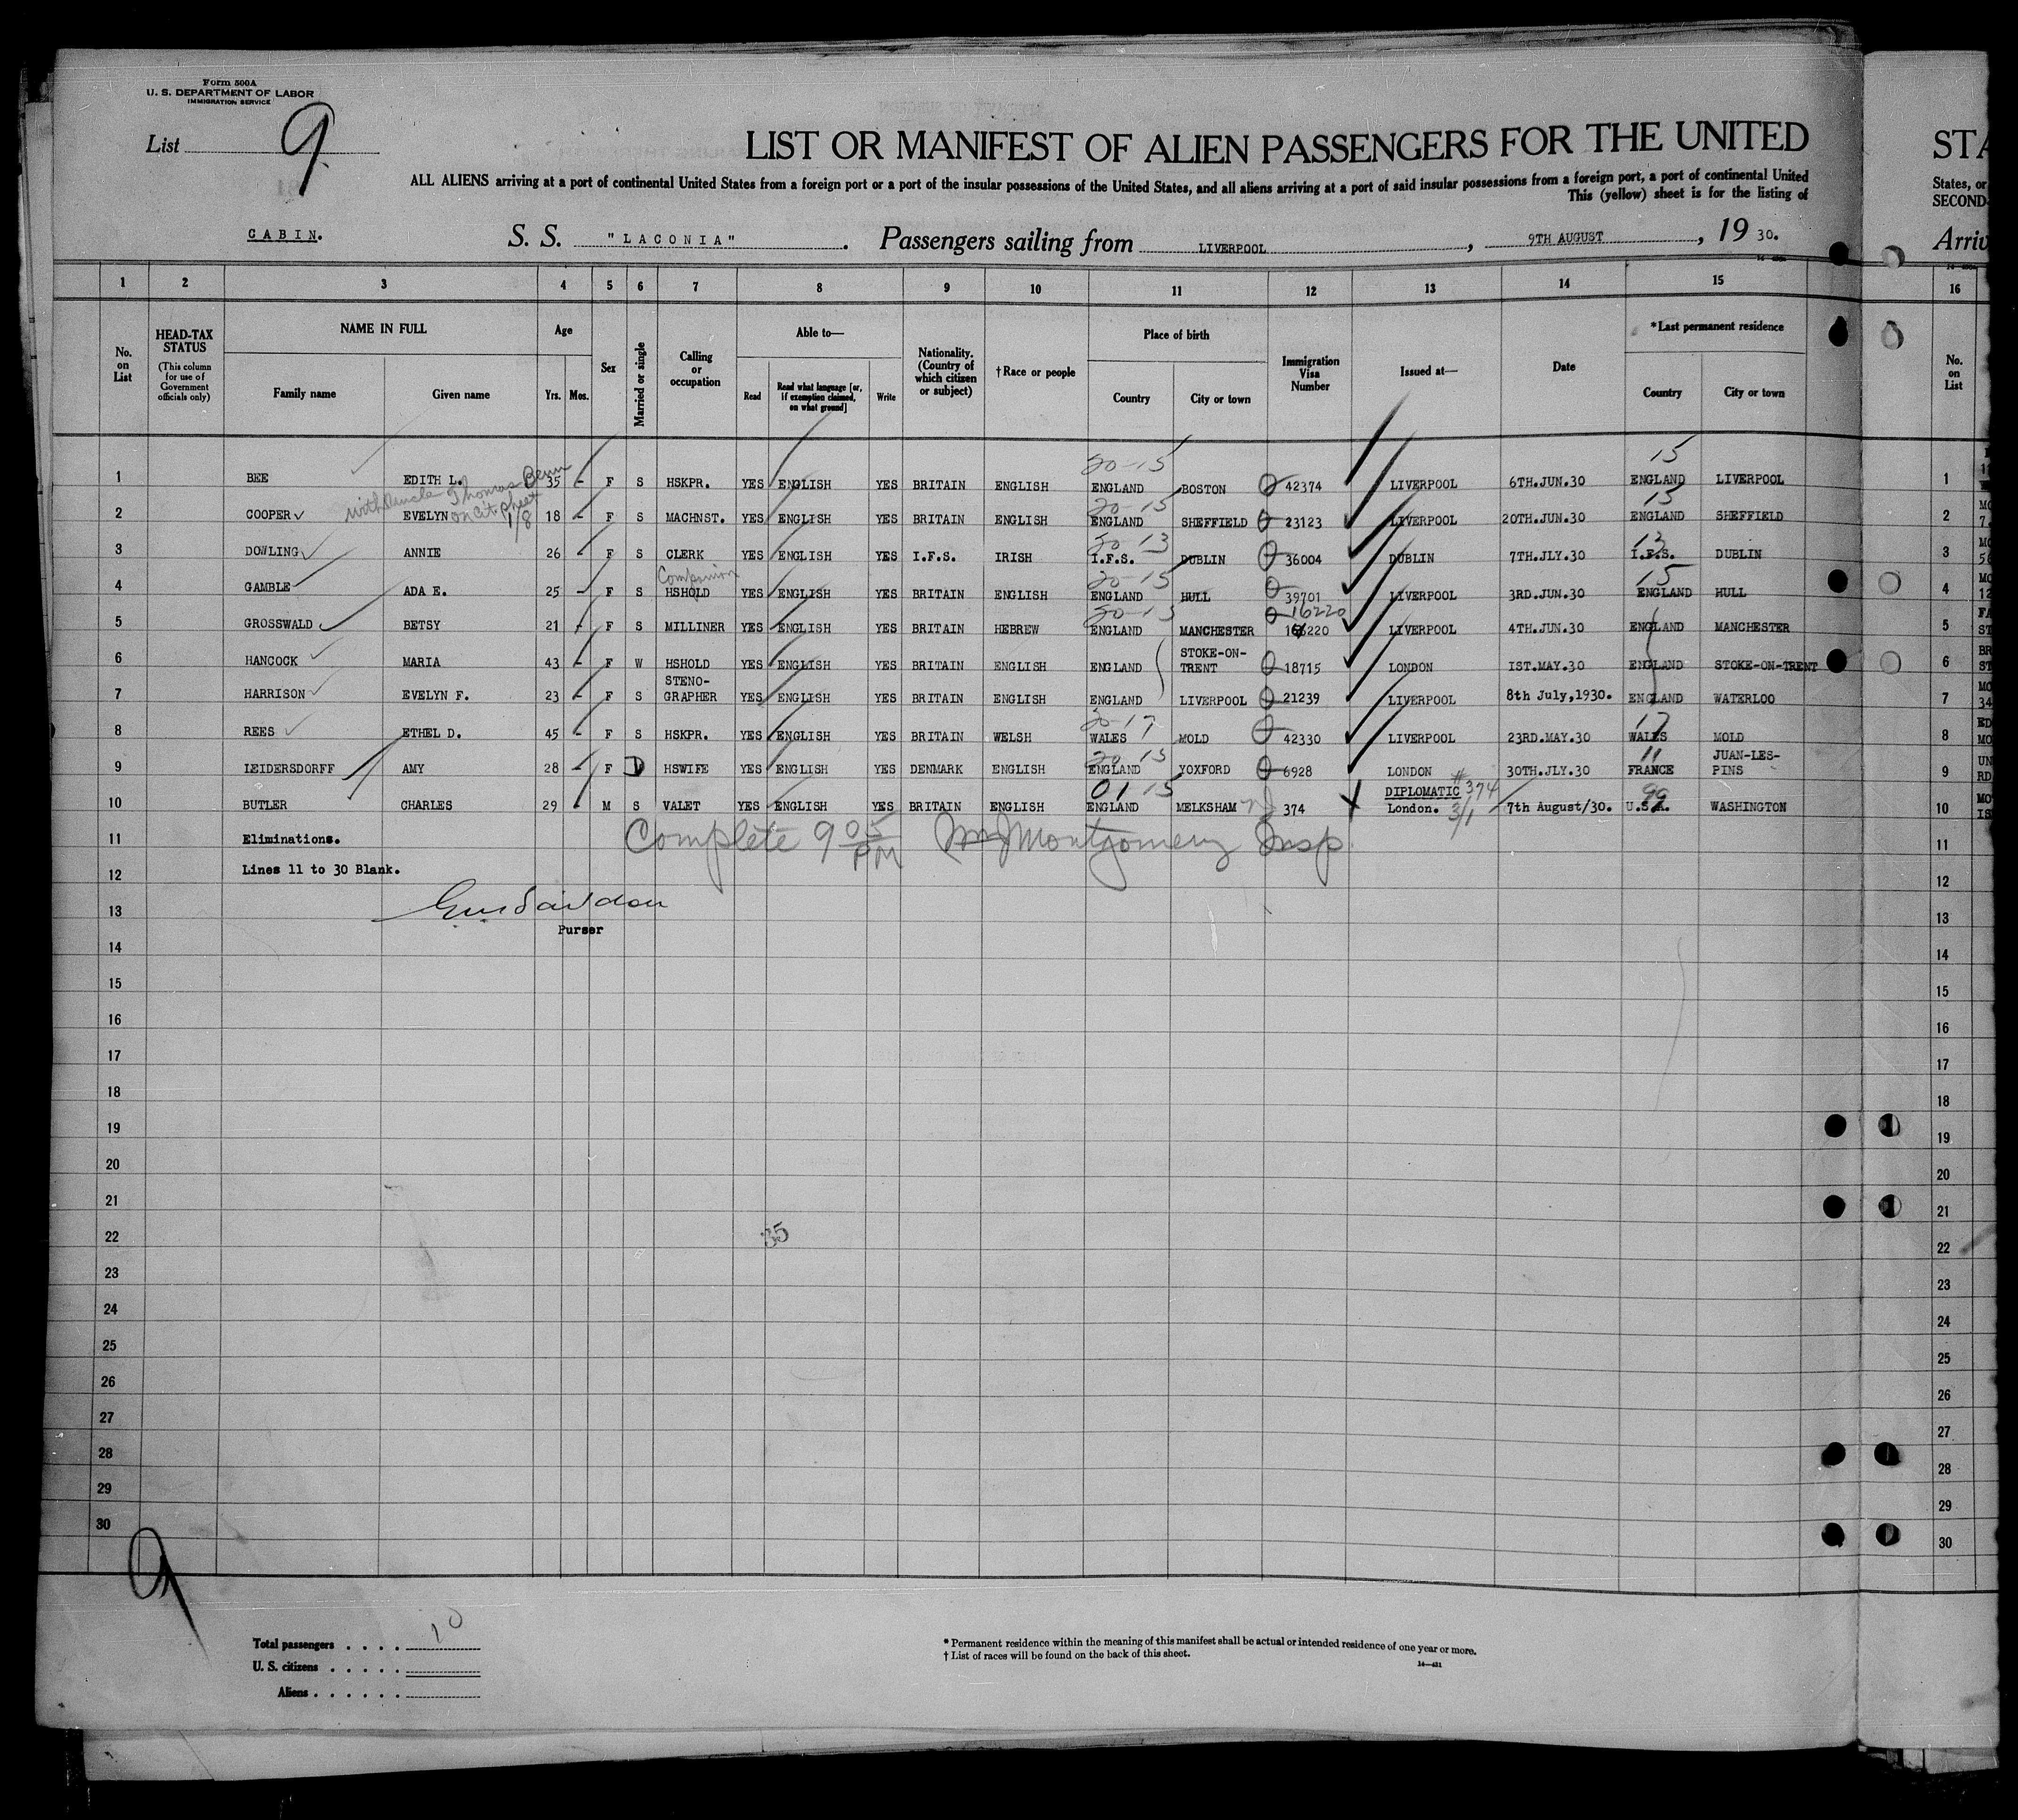 Form 500A
U. S. DEPARTMENT OF LABOR
IMMIGRATION SERVICE
List 9
LIST OR MANIFEST OF ALIEN PASSENGERS FOR THE UNITED
ALL ALIENS arriving at a port of continental United States from a foreign port or a port of the insular possessions of the United States, and all aliens arriving at a port of said insular possessions from a foreign port, a port of continental United
This (yellow) sheet is for the listing of
CABIN. S. S. "LACONIA". Passengers sailing from LIVERPOOL, 9TH AUGUST, 19 30.
STA
States, or
SECOND-
Arriv
1 2 3 4 5 6 7 8 9 10 11 12 13 14 15 16
No. on List
HEAD-TAX STATUS
(This column for use of Government officials only)
NAME IN FULL
Family name Given name
Age
Yrs. Mos.
Sex
Married or single
Calling or occupation
Able to—
Read Read what language [or, if exemption claimed, on what ground] Write
Nationality. (Country of which citizen or subject)
†Race or people
Place of birth
Country City or town
Immigration Visa Number
Issued at—
Date
*Last permanent residence
Country City or town
No. on List
20-15 15
1 BEE EDITH L. 35 - F S HSKPR. YES ENGLISH YES BRITAIN ENGLISH ENGLAND BOSTON 42374 LIVERPOOL 6TH.JUN.30 ENGLAND LIVERPOOL 1
with uncle Thomas Benn
on Cit. sheet
1/8
20-15 15
2 COOPER EVELYN 18 - F S MACHNST. YES ENGLISH YES BRITAIN ENGLISH ENGLAND SHEFFIELD 23123 LIVERPOOL 20TH.JUN.30 ENGLAND SHEFFIELD 2
20 13 13
3 DOWLING ANNIE 26 - F S CLERK YES ENGLISH YES I.F.S. IRISH I.F.S. DUBLIN 36004 DUBLIN 7TH.JLY.30 I.F.S. DUBLIN 3
Companion 20-15 15
4 GAMBLE ADA E. 25 - F S HSHOLD YES ENGLISH YES BRITAIN ENGLISH ENGLAND HULL 39701 LIVERPOOL 3RD.JUN.30 ENGLAND HULL 4
20-15 16220
5 GROSSWALD BETSY 21 - F S MILLINER YES ENGLISH YES BRITAIN HEBREW ENGLAND MANCHESTER 16220 LIVERPOOL 4TH.JUN.30 ENGLAND MANCHESTER 5
6 HANCOCK MARIA 43 - F W HSHOLD YES ENGLISH YES BRITAIN ENGLISH ENGLAND STOKE-ON-TRENT 18715 LONDON IST.MAY.30 ENGLAND STOKE-ON-TRENT 6
7 HARRISON EVELYN F. 23 - F S STENO-GRAPHER YES ENGLISH YES BRITAIN ENGLISH ENGLAND LIVERPOOL 21239 LIVERPOOL 8th July,1930. ENGLAND WATERLOO 7
20-17 17
8 REES ETHEL D. 45 - F S HSKPR. YES ENGLISH YES BRITAIN WELSH WALES MOLD 42330 LIVERPOOL 23RD.MAY.30 WALES MOLD 8
20 15 11
9 LEIDERSDORFF AMY 28 - F D HSWIFE YES ENGLISH YES DENMARK ENGLISH ENGLAND YOXFORD 6928 LONDON 30TH.JLY.30 FRANCE JUAN-LES-PINS 9
01 15 DIPLOMATIC #374 99
10 BUTLER CHARLES 29 - M S VALET YES ENGLISH YES BRITAIN ENGLISH ENGLAND MELKSHAM 374 London. 3/1 7th August/30. U.S.A. WASHINGTON 10
11 Eliminations. Complete 9 05 PM Montgomery Insp. 11
12 Lines 11 to 30 Blank. 12
13 13
Purser
14 14
15 15
16 16
17 17
18 18
19 19
20 20
21 21
22 35 22
23 23
24 24
25 25
26 26
27 27
28 28
29 29
30 30
9
Total passengers . . . . 10
U. S. citizens . . . . .
Aliens . . . . . .
* Permanent residence within the meaning of this manifest shall be actual or intended residence of one year or more.
† List of races will be found on the back of this sheet.
14—421